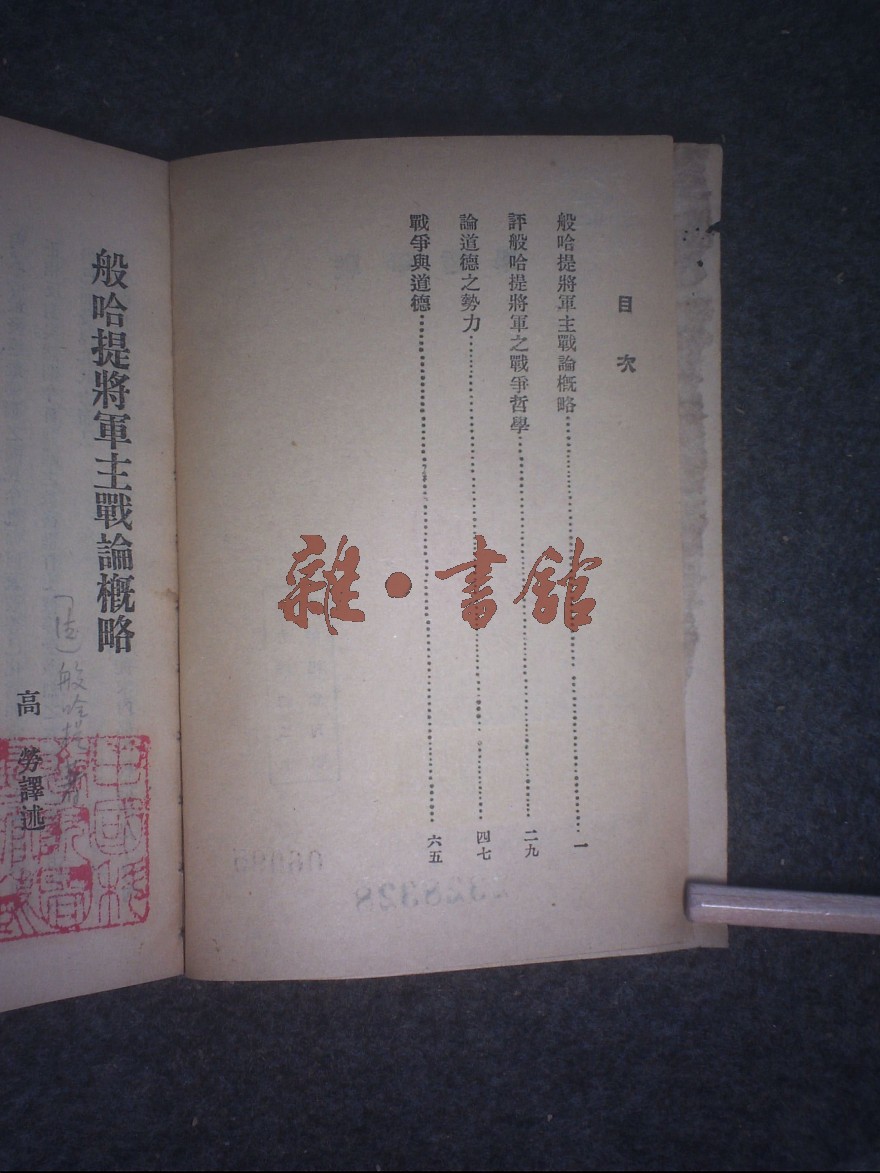 目次
般哈提將軍主戰論概略 一
評般哈提將軍之戰爭哲學 二九
論道德之勢力 四七
戰爭與道德 六五
般哈提將軍主戰論概略
般哈提著
高勞譯述
雜·書館
328328